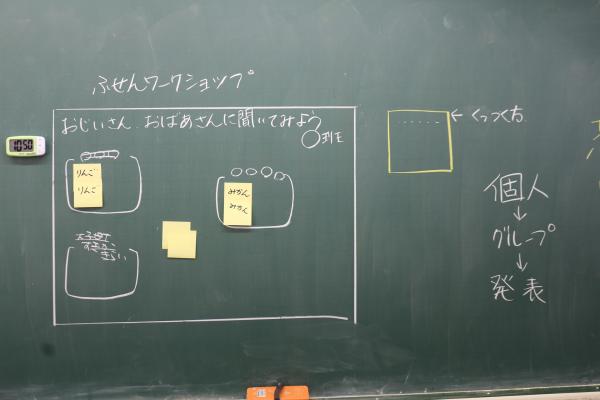 ふせんワークショップ
おじいさん、おばあさんに聞いてみよう
〇班
10:50
りんご
りんご
みかん
みかん
すきっ
きらい
← くっつく方
個人
↓
グループ
↓
発表